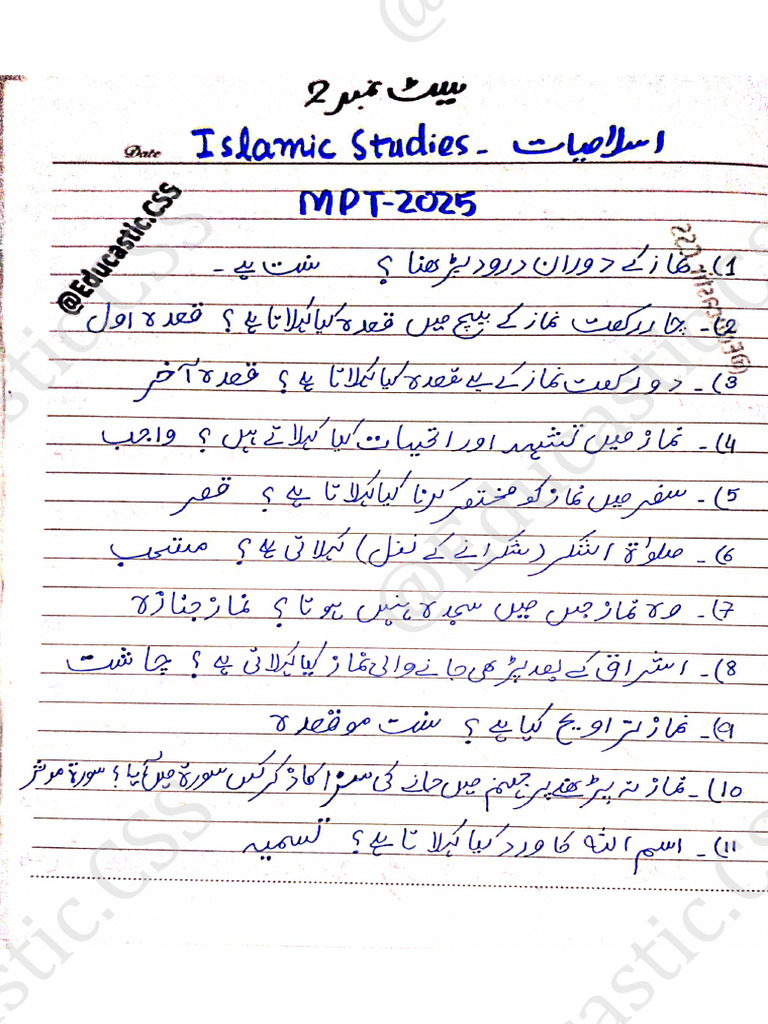 سیٹ نمبر 2
Date Islamic Studies - اسلامیات
MPT-2025
@Educastic.CSS
1)- نماز کے دوران درود پڑھنا ؟ سنت ہے -
2)- چار رکعت نماز کے بیچ میں قعدہ کیا کہلاتا ہے ؟ قعدہ اول
3)- دو رکعت نماز کے لیے قعدہ کیا کہلاتا ہے ؟ قعدہ آخر
4)- نماز میں تشہد اور التحیات کیا کہلاتے ہیں ؟ واجب
5)- سفر میں نماز کو مختصر کرنا کیا کہلاتا ہے ؟ قصر
6)- صلوٰۃ الشکر (شکرانے کے نفل) کہلاتی ہے ؟ مستحب
7)- وہ نماز جس میں سجدہ نہیں ہوتا ؟ نماز جنازہ
8)- اشراق کے بعد پڑھی جانے والی نماز کیا کہلاتی ہے ؟ چاشت
9)- نماز تراویح کیا ہے ؟ سنت موقعدہ
10)- نماز نہ پڑھنے پر جہنم میں جانے کی سزا کا ذکر کس سورۃ میں آیا ؟ سورۃ موثر
11)- اسم اللہ کا ورد کیا کہلاتا ہے ؟ تسمیہ
@Educastic.CSS